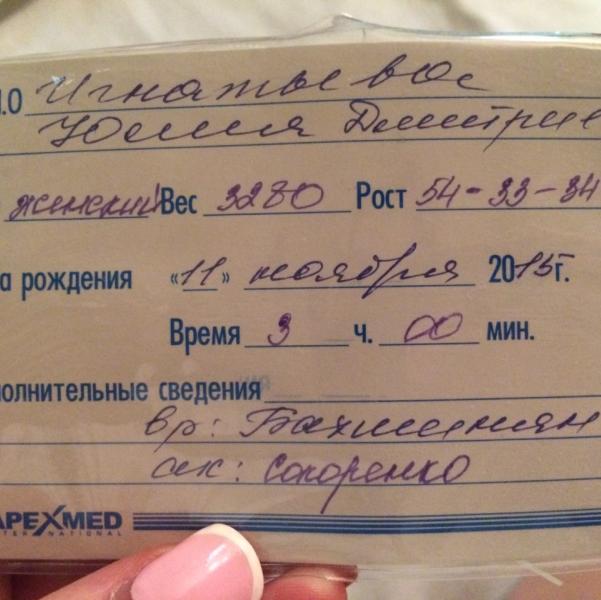 И.О Игнатьева
Юлия Дмитрие
женский Вес 3280 Рост 54-33-34
а рождения «11» ноября 2015г.
Время 3 ч. 00 мин.
полнительные сведения
вр:
ак: Сопоренко
APEXMED
INTERNATIONAL